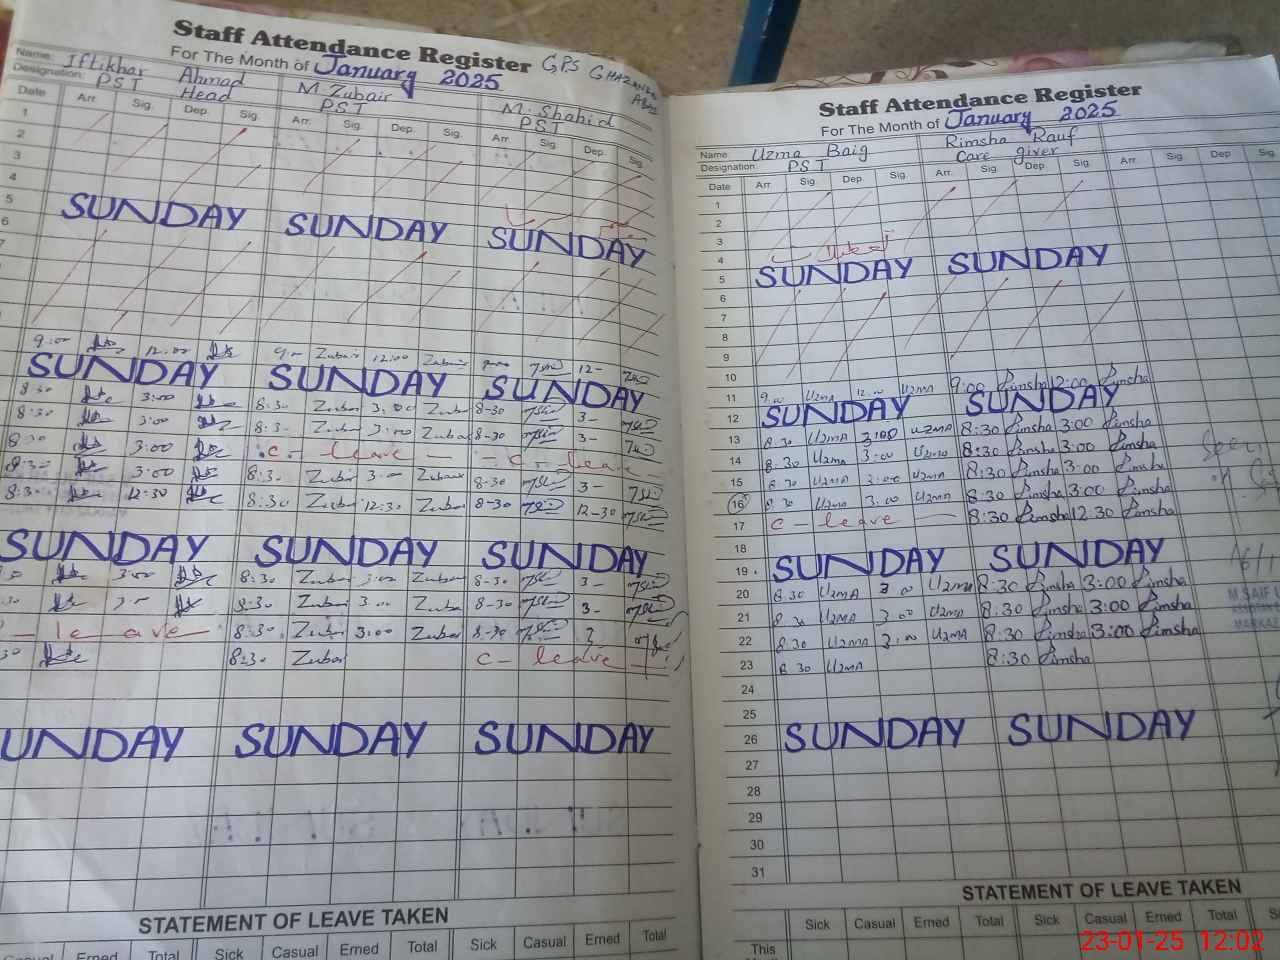 Staff Attendance Register
For The Month of January 2025
GPS GHAZANI
Name: Iftikhar Ahmad M Zubair M. Shahid
Designation: PST Head PST PST
Date Arr. Sig. Dep. Sig. Arr. Sig. Dep. Sig. Arr. Sig. Dep. Sig.
1
2
3
4
5 SUNDAY SUNDAY SUNDAY
6
7
9:00 12:00 9:00 Zubair 12:00 Zubair 12-
SUNDAY SUNDAY SUNDAY
8:30 3:00 8:30 Zubair 3:00 Zubair 8-30 3-
8:30 3:00 8:30 Zubair 3:00 Zubair 8-30 3-
8:30 3:00 C- leave - C- leave
8:30 3:00 8:30 Zubair 3:00 Zubair 8-30 3-
8:30 12:30 8:30 Zubair 12:30 Zubair 8-30 12-30
SUNDAY SUNDAY SUNDAY
3:00 8:30 Zubair 3:00 Zubair 8-30 3-
30 3-- 8:30 Zubair 3:00 Zubair 8-30 3-
- leave 8:30 Zubair 3:00 Zubair 8-30 3
30 8:30 Zubair C- leave
UNDAY SUNDAY SUNDAY
STATEMENT OF LEAVE TAKEN
Casual Erned Total Sick Casual Erned Total Sick Casual Erned Total
Staff Attendance Register
For The Month of January 2025
Name: Uzma Baig Rimsha Rauf
Designation: PST Care giver
Date Arr. Sig. Dep. Sig. Arr. Sig. Dep. Sig. Arr. Sig. Dep Sig.
1
2
3
4
5 SUNDAY SUNDAY
6
7
8
9
10
11 9:00 UzMA 12:00 UzMA 9:00 Rimsha 12:00 Rimsha
12 SUNDAY SUNDAY
13 8:30 UzMA 3:00 UZMA 8:30 Rimsha 3:00 Rimsha
14 8:30 UzMA 3:00 UzMA 8:30 Rimsha 3:00 Rimsha
15 8:30 UzMA 3:00 UzMA 8:30 Rimsha 3:00 Rimsha
16 8:30 UzMA 3:00 UzMA 8:30 Rimsha 3:00 Rimsha
17 C - leave - 8:30 Rimsha 12.30 Rimsha
18
19 SUNDAY SUNDAY
20 8:30 UzMA 3:00 UzMA 8:30 Rimsha 3:00 Rimsha
21 8:30 UzMA 3:00 UzMA 8:30 Rimsha 3:00 Rimsha
22 8:30 UzMA 3:00 UzMA 8:30 Rimsha 3:00 Rimsha
23 8:30 UzMA 8:30 Rimsha
24
25
26 SUNDAY SUNDAY
27
28
29
30
31
M SAIF
MARKAZ
STATEMENT OF LEAVE TAKEN
Sick Casual Erned Total Sick Casual Erned Total
This
23-01-25 12:02